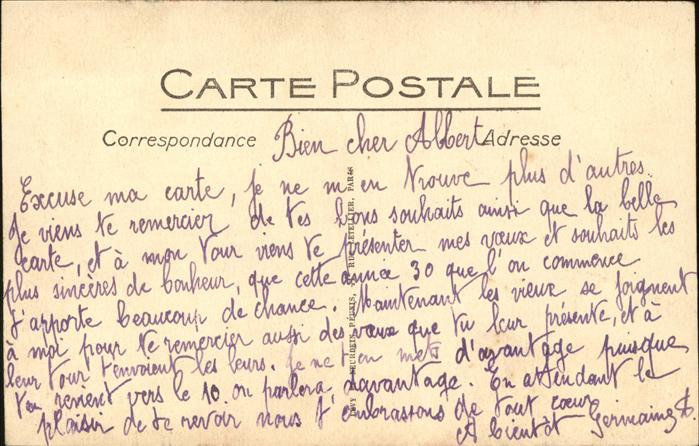 CARTE POSTALE
Correspondance
Adresse
Bien cher Albert
Excuse ma carte, je ne m'en trouve plus d'autres.
Je viens te remercier de tes bons souhaits ainsi que la belle
carte, et à mon tour viens te présenter mes vœux et souhaits les
plus sincères de bonheur, que cette année 30 que l'on commence
t'apporte beaucoup de chance. Maintenant les vieux se joignent
à moi pour te remercier aussi des vœux que tu leur présente, et à
leur tour t'envoient les leurs. Je ne t'en mets d'avantage puisque
tu revient vers le 10. on parlera davantage. En attendant le
plaisir de te revoir nous t'embrassons de tout cœur
A bientôt Germaine
LEVY & NEURDEIN RÉUNIS, RUE LETELLIER, PARIS